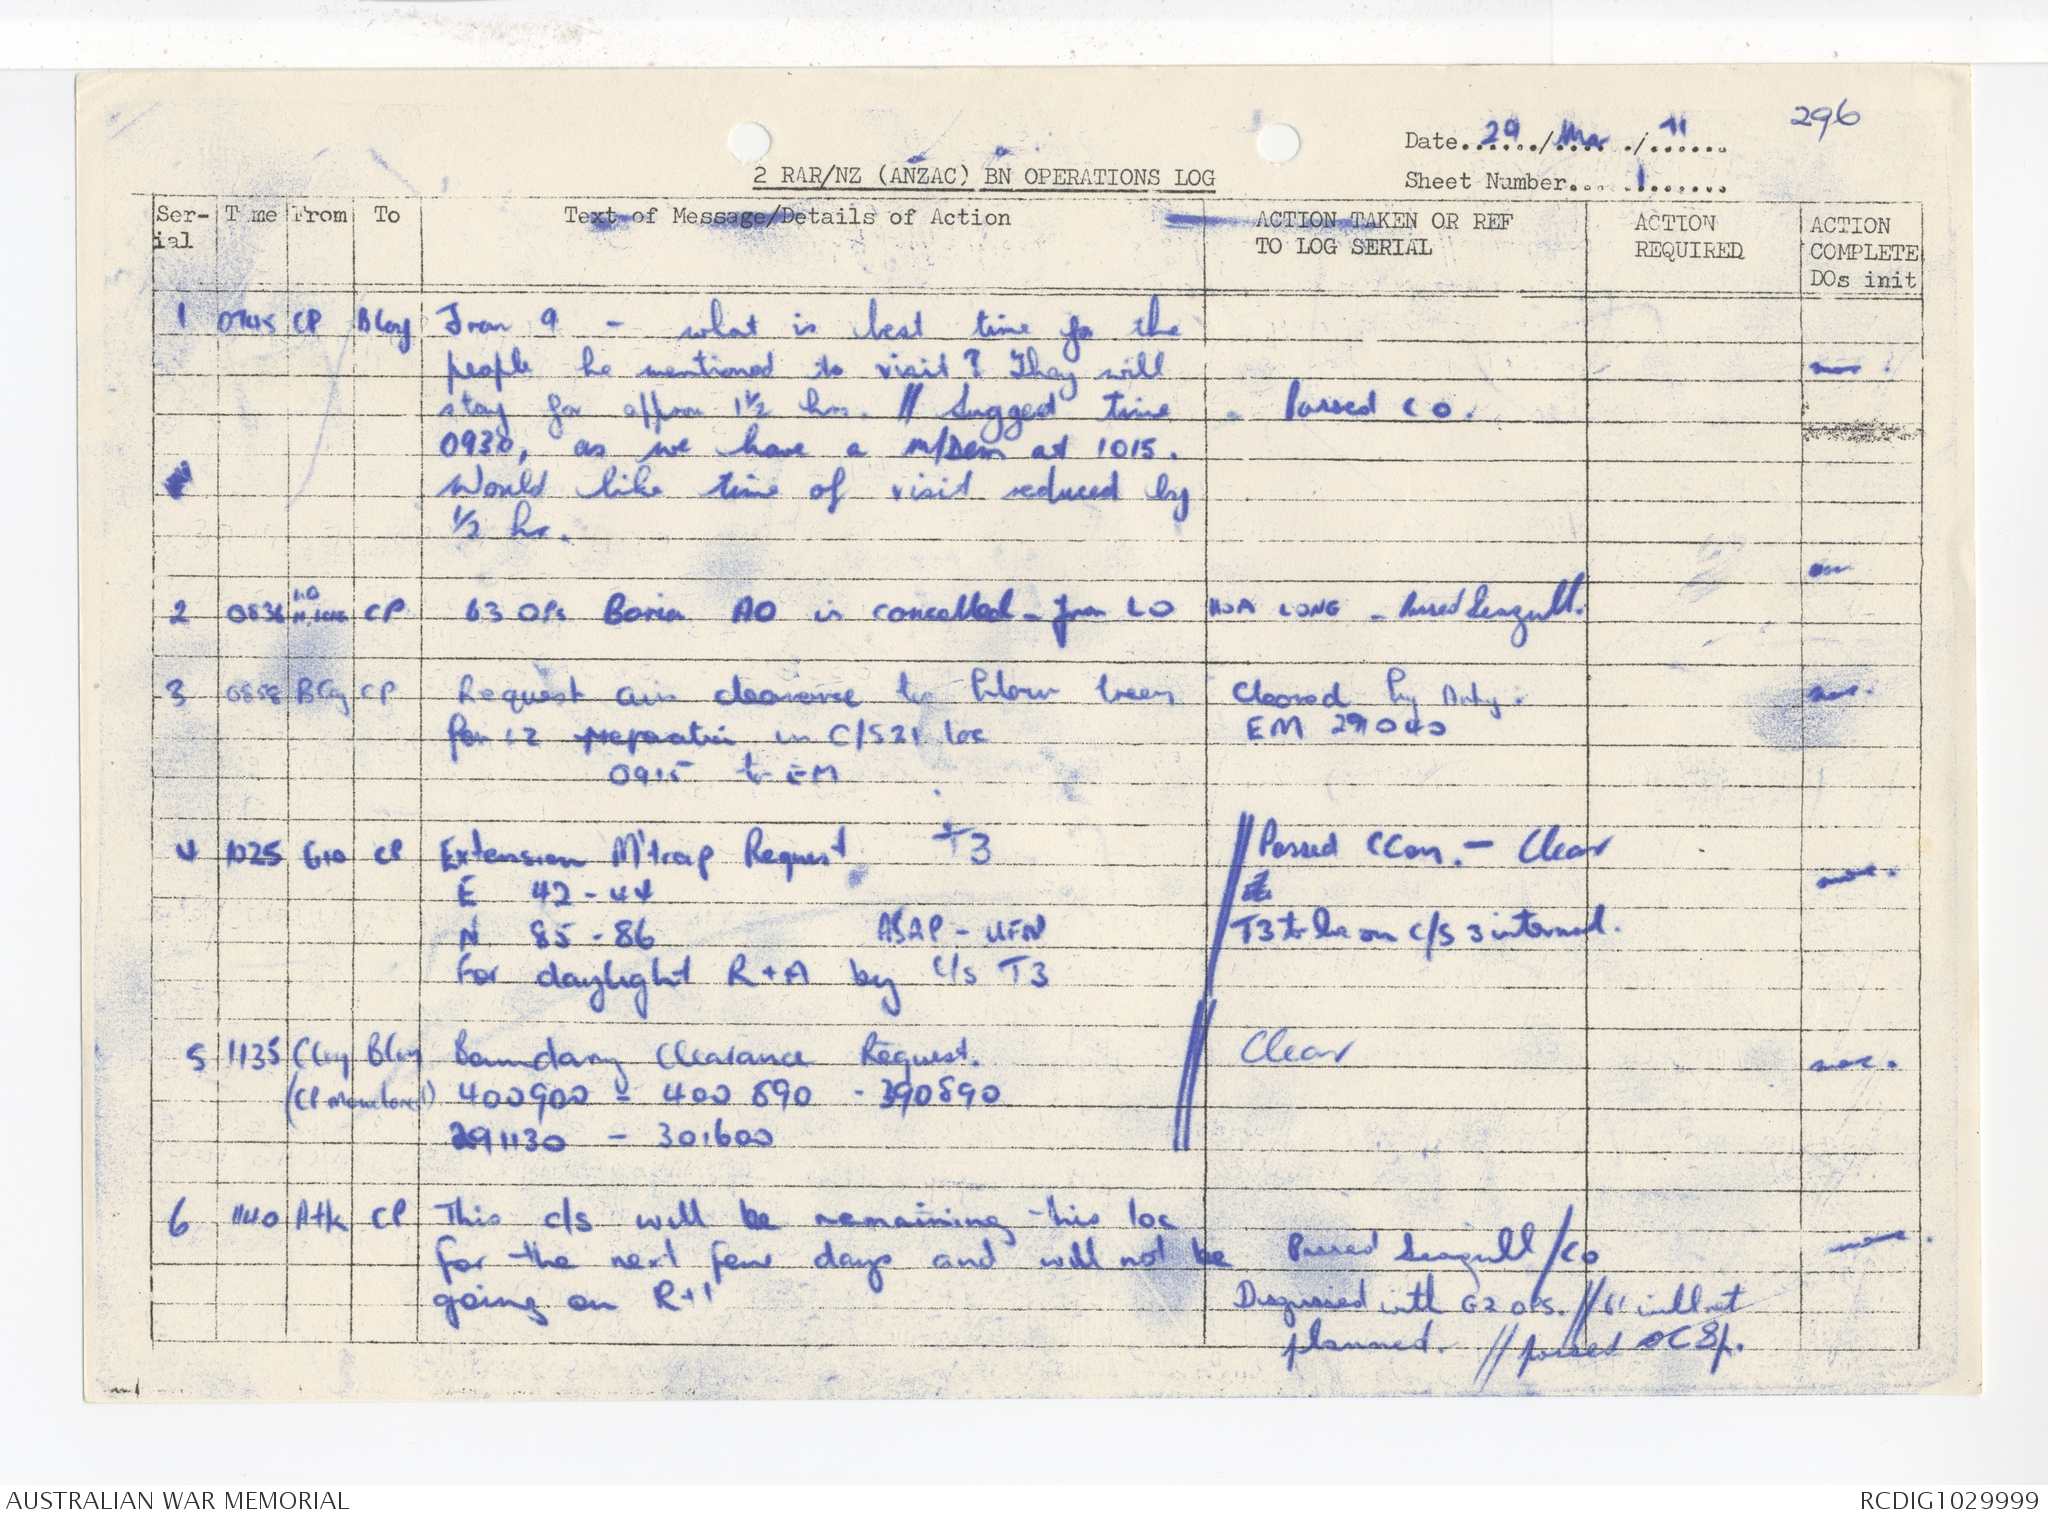 296
Date 29 / Mar / 71
Sheet Number 1
2 RAR/NZ (ANZAC) BN OPERATIONS LOG
Ser-ial Time From To Text of Message/Details of Action ACTION TAKEN OR REF TO LOG SERIAL ACTION REQUIRED ACTION COMPLETE DOs init
1 0745 CP BCoy From 9 - what is best time for the
people he mentioned to visit? They will
stay for approx 1½ hrs. // Suggest time - Passed CO.
0930, as we have a m/Dem at 1015.
Would like time of visit reduced by
½ hr.
2 0836 LO CP 63 OPs Baria AO is cancelled - from LO HOA LONG - Passed Seagull.
3 0858 BCoy CP Request air clearance to blow trees Cleared by Arty.
for LZ preparation in C/S 21 loc EM 291040
0915 to EM
4 1025 G10 CP Extension M'trap Request T3 // Passed CCoy. - Clear
E 42 - 44
N 85 - 86 ASAP - UFN T3 to be on C/S 3 internal.
For daylight R+A by C/S T3
5 1135 CCoy BCoy Boundary Clearance Request. // Clear
(CP monitored) 400900 - 400890 - 390890
291130 - 301600
6 1140 Atk CP This c/s will be remaining this loc
for the next few days and will not be Passed Seagull/CO
going on R+ Discussed with G2 OPS. //
planned. // passed OC Sp.
AUSTRALIAN WAR MEMORIAL RCDIG1029999